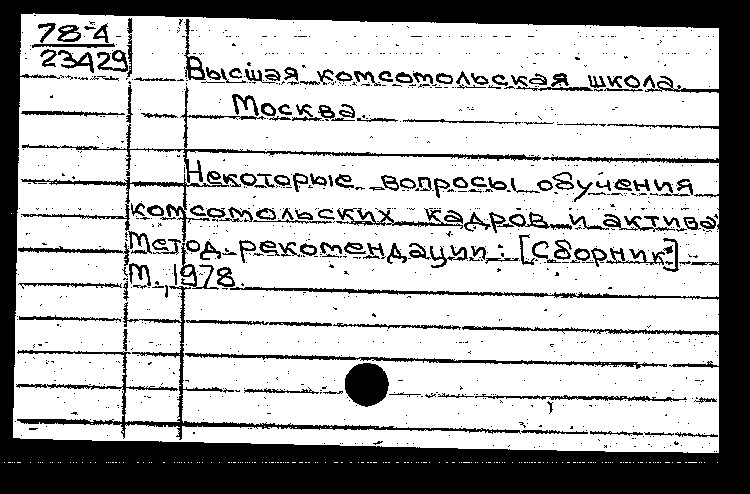 78-4
23429
Высшая комсомольская школа.
Москва.
Некоторые вопросы обучения
комсомольских кадров и актива
Метод. рекомендации: [Сборник]
М., 1978.